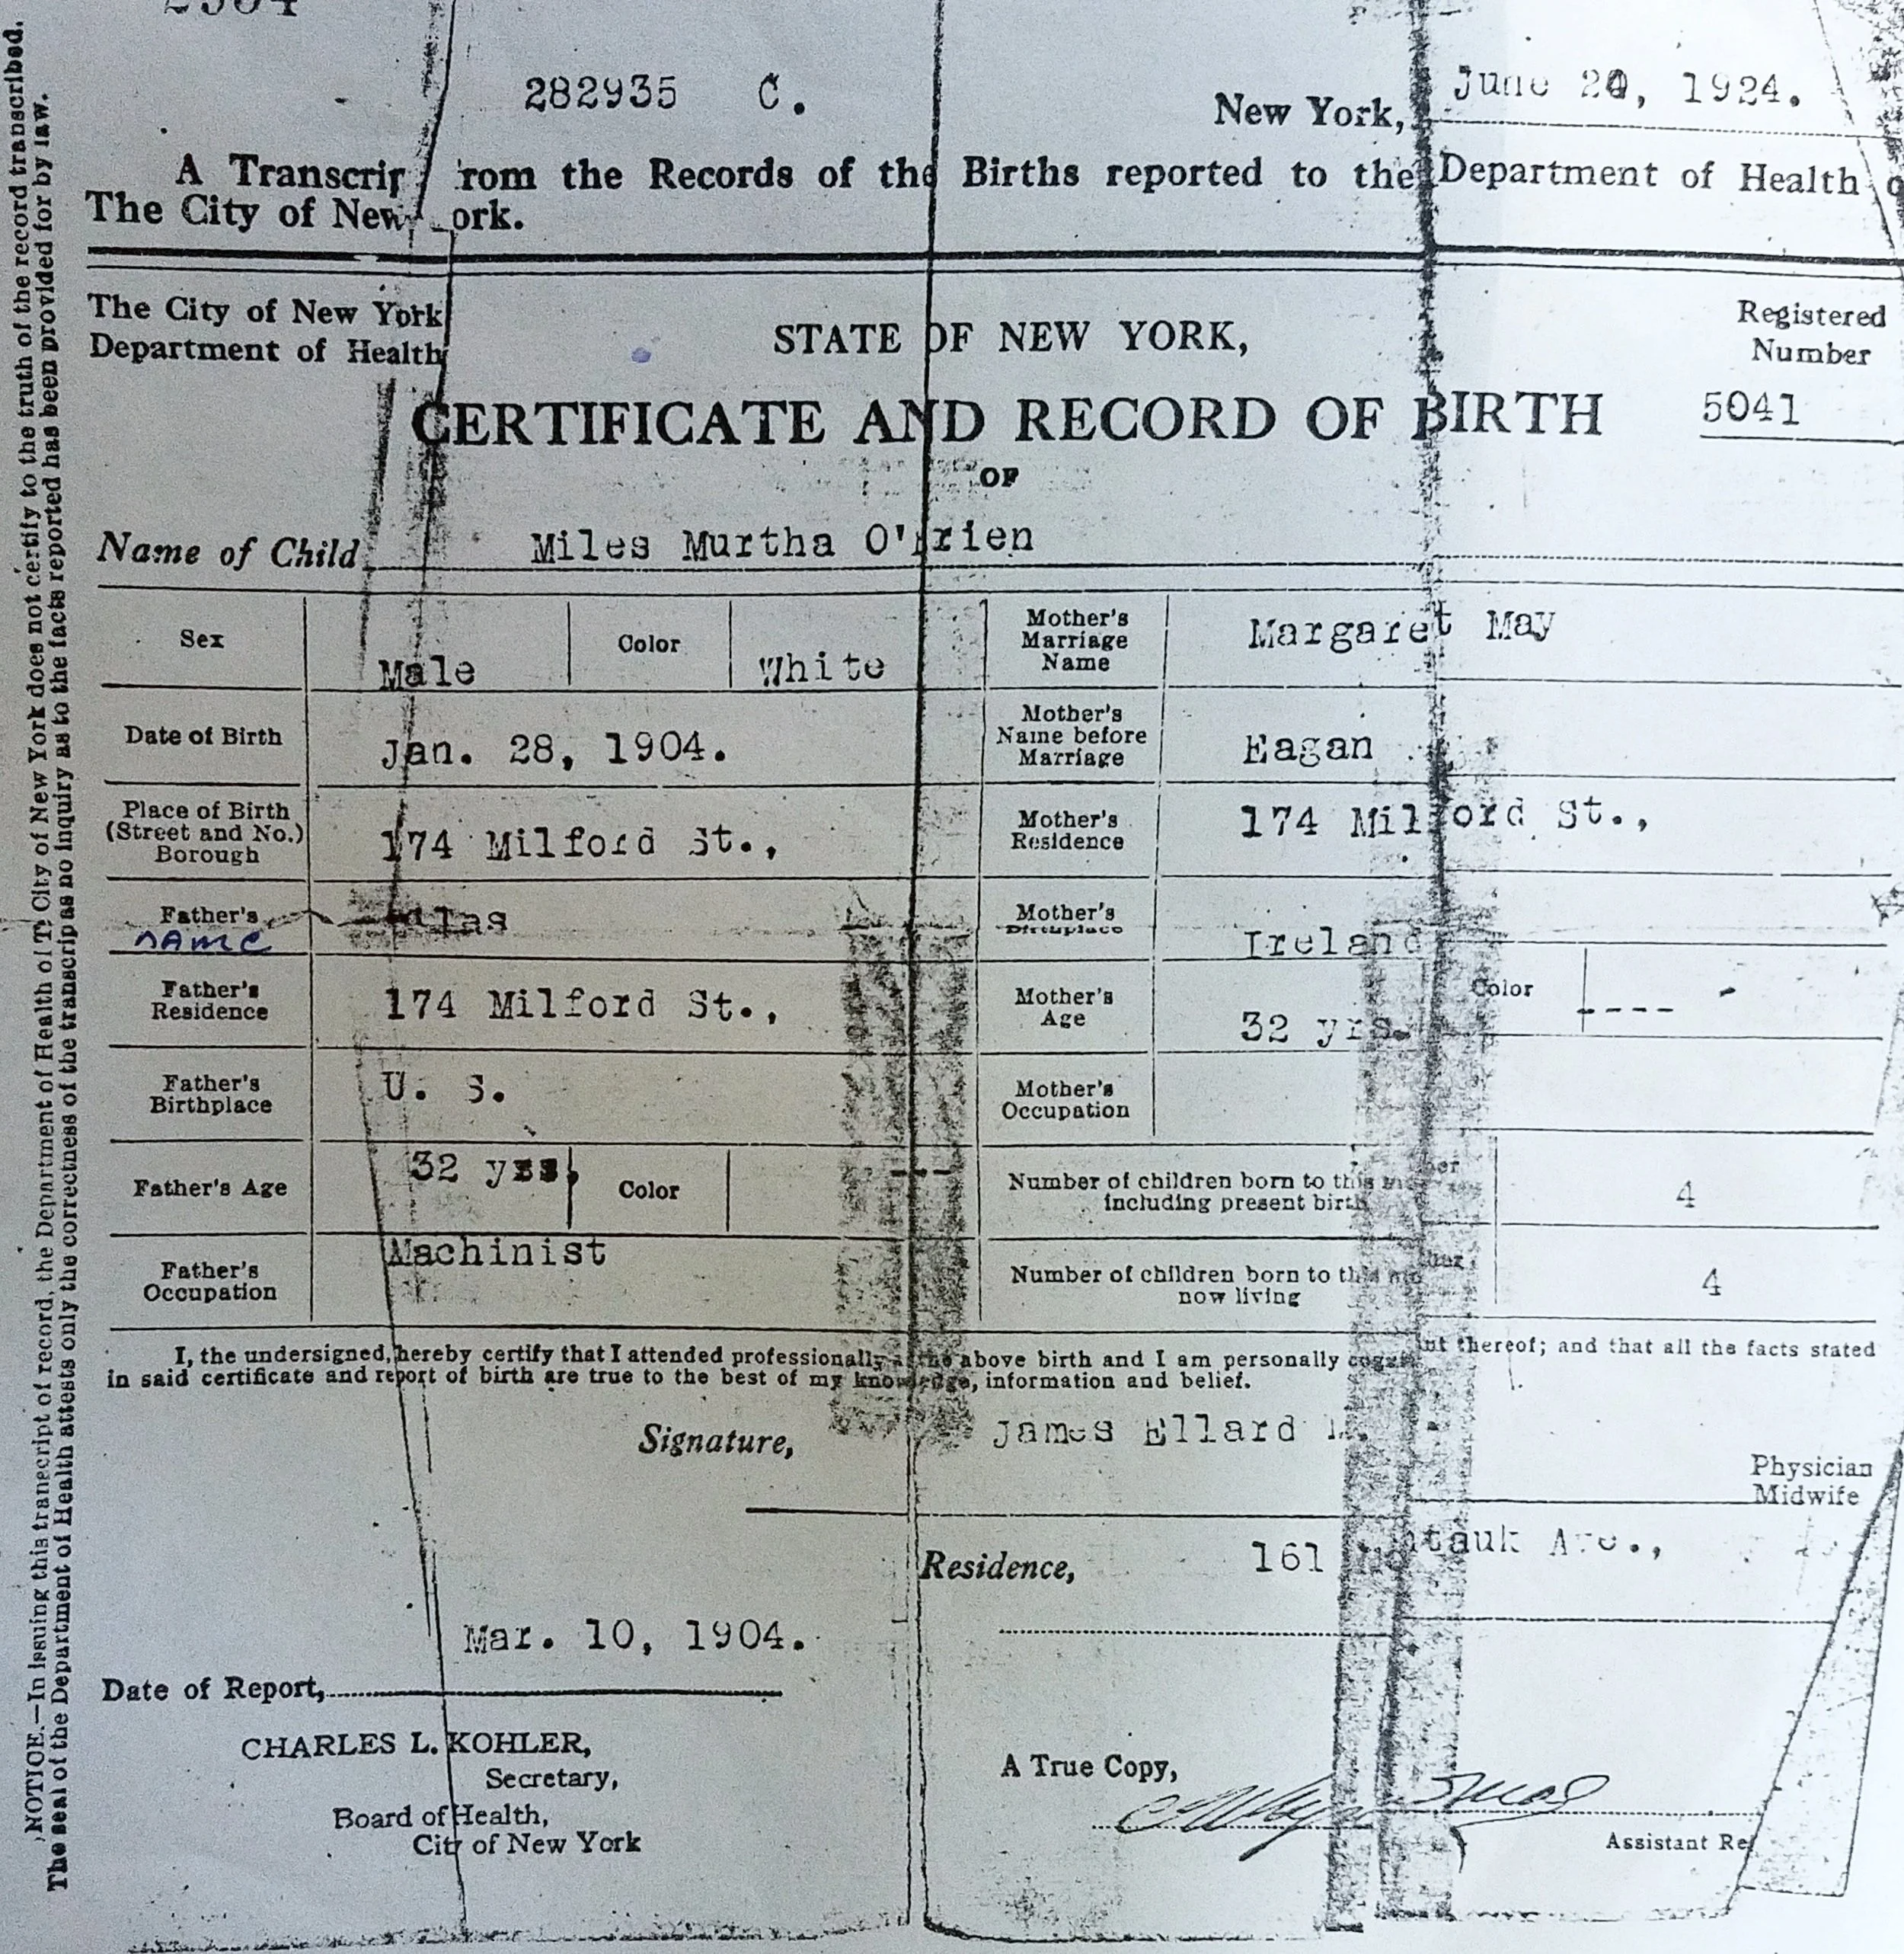 282935 C.
New York, June 20, 1924.
A Transcrip rom the Records of the Births reported to the Department of Health
The City of New ork.
The City of New York
Department of Health
STATE OF NEW YORK,
Registered
Number
5041
CERTIFICATE AND RECORD OF BIRTH
OF
Name of Child Miles Murtha O'Brien
Sex Male Color White
Mother's Marriage Name Margaret May
Date of Birth Jan. 28, 1904.
Mother's Name before Marriage Eagan
Place of Birth (Street and No.) Borough 174 Milford St.,
Mother's Residence 174 Milford St.,
Father's name
Mother's Birthplace Ireland
Father's Residence 174 Milford St.,
Mother's Age 32 yrs. Color ----
Father's Birthplace U. S.
Mother's Occupation
Father's Age 32 yrs. Color ---
Number of children born to this mother including present birth 4
Father's Occupation Machinist
Number of children born to this mother now living 4
I, the undersigned, hereby certify that I attended professionally at the above birth and I am personally thereof; and that all the facts stated
in said certificate and report of birth are true to the best of my knowledge, information and belief.
Signature, James Ellard
Physician
Midwife
Residence, 161
Mar. 10, 1904.
Date of Report,
CHARLES L. KOHLER,
Secretary,
Board of Health,
City of New York
A True Copy,
Assistant Re
NOTICE.—In issuing this transcript of record, the Department of Health of The City of New York does not certify to the truth of the record transcribed.
The seal of the Department of Health attests only the correctness of the transcript as no inquiry as to the facts reported has been provided for by law.